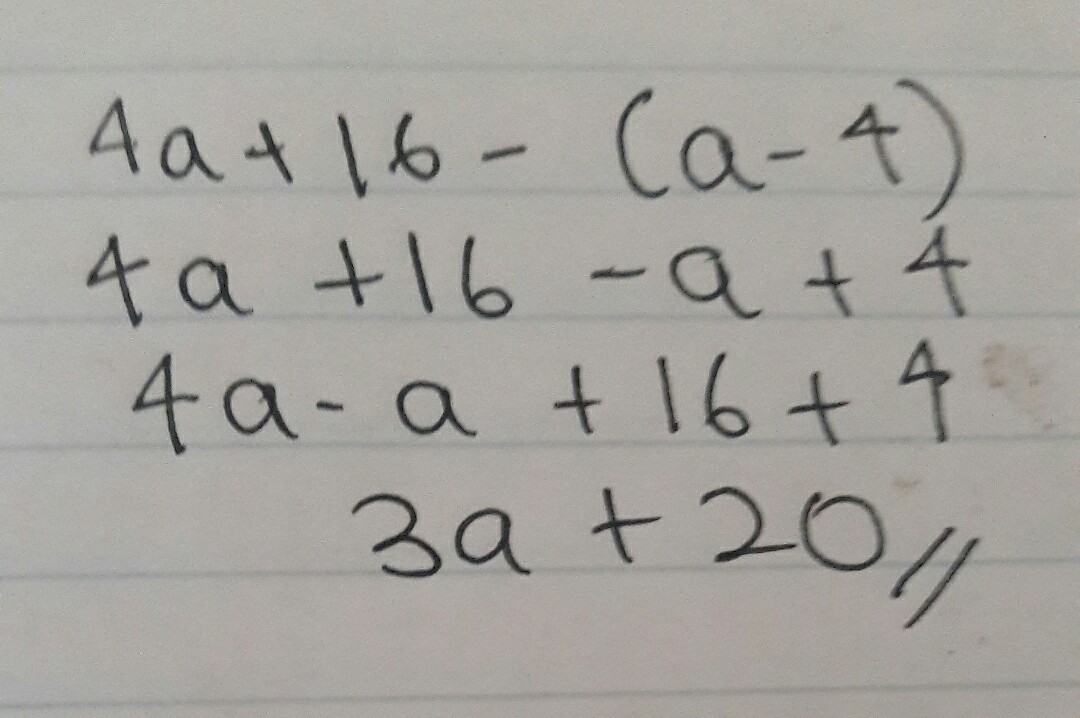 4a + 16 - (a - 4)
4a + 16 - a + 4
4a - a + 16 + 4
3a + 20 //